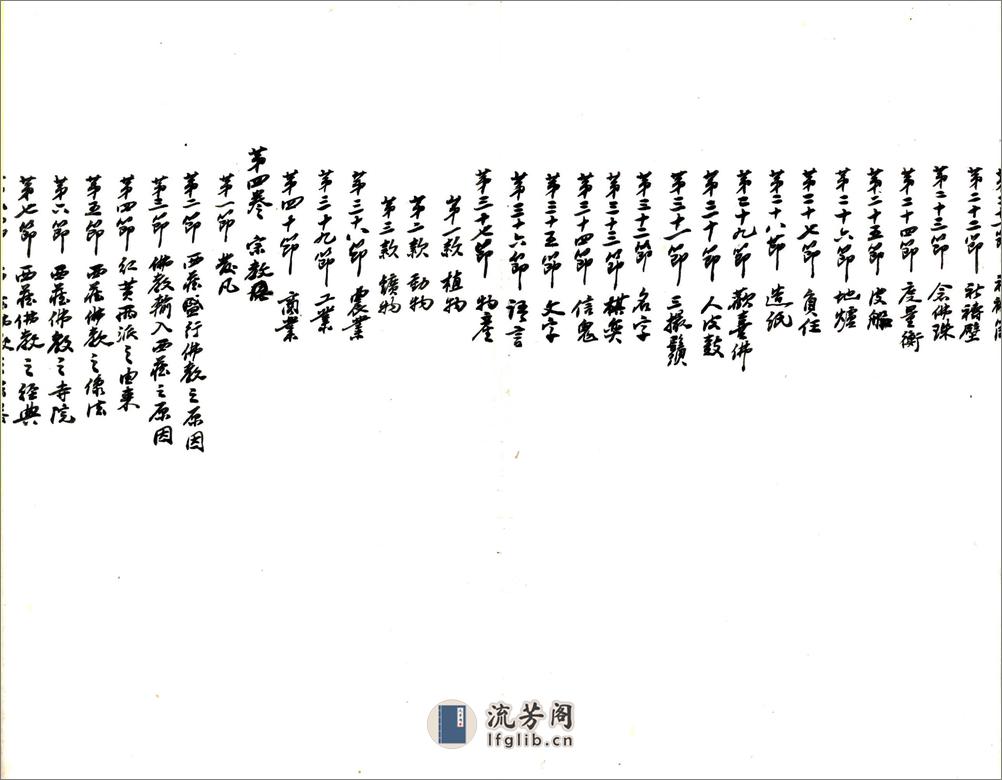 第二十二節 社禱壁
第二十三節 念佛珠
第二十四節 度量衡
第二十五節 皮服
第二十六節 地爐
第二十七節 負任
第二十八節 造紙
第二十九節 歡喜佛
第三十節 人皮鼓
第三十一節 三撮鬚
第三十二節 名字
第三十三節 棋奕
第三十四節 信鬼
第三十五節 文字
第三十六節 語言
第三十七節 物產
第一款 植物
第二款 動物
第三款 鑛物
第三十八節 農業
第三十九節 工業
第四十節 商業
第四卷 宗教
第一節 發凡
第二節 西藏盛行佛教之原因
第三節 佛教輸入西藏之原因
第四節 紅黃两派之由来
第五節 西藏佛教之像法
第六節 西藏佛教之寺院
第七節 西藏佛教之經典
流芳阁
lfglib.cn